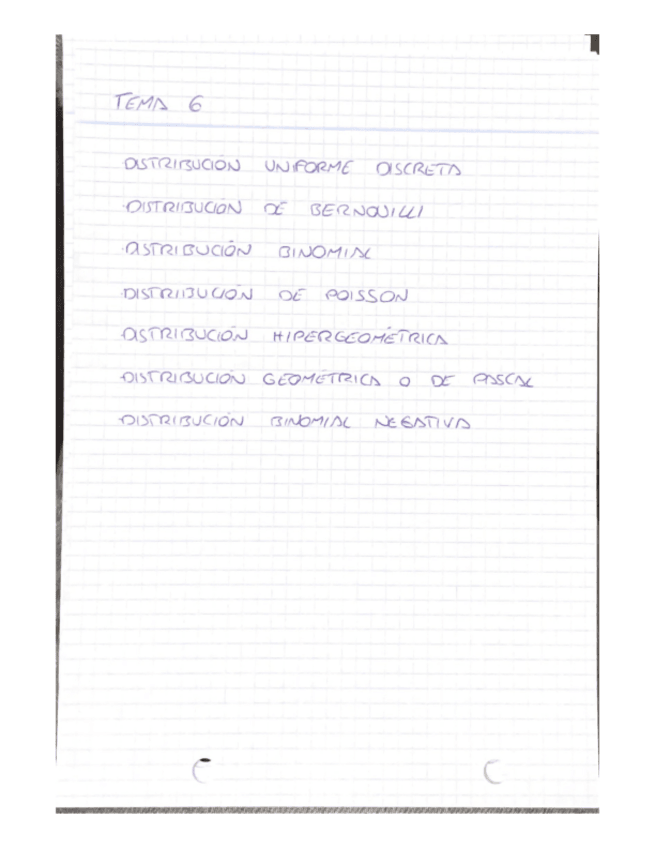 TEMA 6
DISTRIBUCIÓN UNIFORME DISCRETA
DISTRIBUCIÓN DE BERNOUILLI
DISTRIBUCIÓN BINOMIAL
DISTRIBUCIÓN DE POISSON
DISTRIBUCIÓN HIPERGEOMÉTRICA
DISTRIBUCIÓN GEOMÉTRICA O DE PASCAL
DISTRIBUCIÓN BINOMIAL NEGATIVA